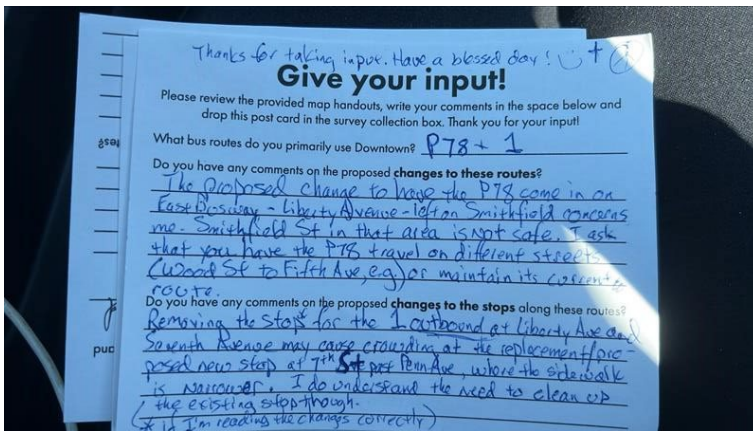 Thanks for taking input. Have a blessed day! + 
Give your input!
Please review the provided map handouts, write your comments in the space below and
drop this post card in the survey collection box. Thank you for your input!
What bus routes do you primarily use Downtown? P78 + 1
Do you have any comments on the proposed changes to these routes?
The proposed change to have the P78 come in on
East Busway - Liberty Avenue - left on Smithfield concerns
me. Smithfield St in that area is not safe. I ask
that you have the P78 travel on different streets
(Wood St to Fifth Ave, e.g.) or maintain its current
route.
Do you have any comments on the proposed changes to the stops along these routes?
Removing the stop* for the 1 outbound at Liberty Ave and
Seventh Avenue may cause crowding at the replacement/pro-
posed new stop at 7th St past Penn Ave, where the sidewalk
is narrower. I do understand the need to clean up
the existing stop though.
(* if I'm reading the changes correctly)